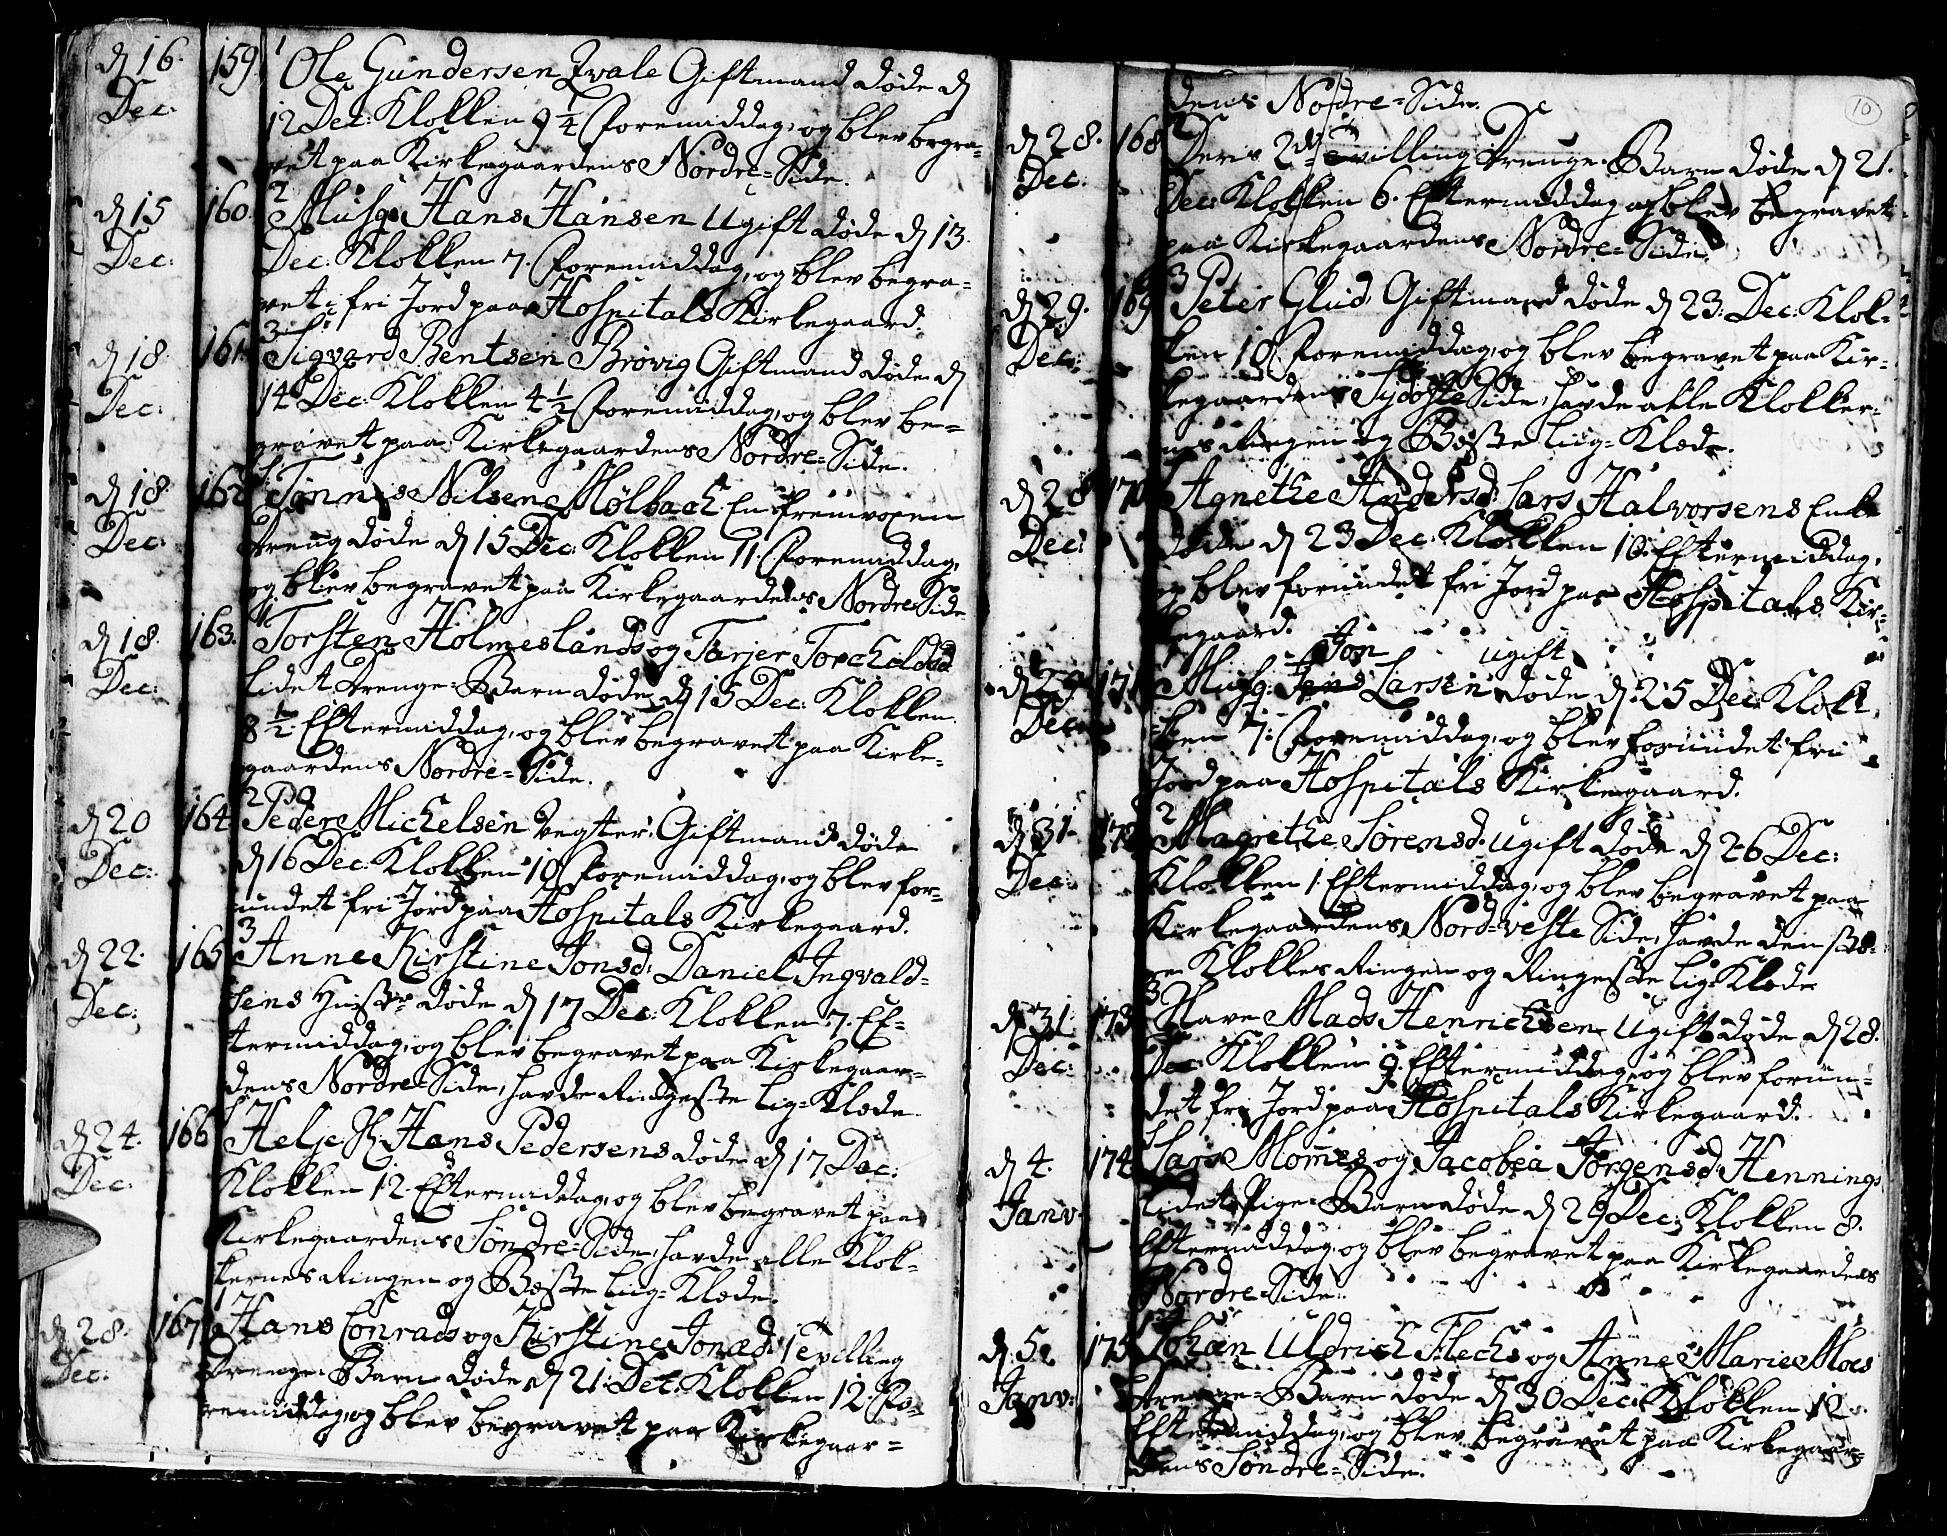 d 16. Dec: 159. 1 Ole Gundersen Qvale Giftmand døde d
12 Dec: Klokken 9 1/4 Formiddag, og blev begra-
vet paa Kirkegaardens Nordre-Side.
d 15 Dec: 160. 2 Musq: Hans Hansen Ugift døde d 13.
Dec: Klokken 7. Formiddag, og blev begra-
vet i fri Jord paa Hospitals Kirkegaard.
d 18. Dec: 161. 3 Sigvard Bentsen Brøvig Giftmand døde d
14 Dec: Klokken 4 1/2 Formiddag, og blev be-
gravet paa Kirkegaardens Nordre-Side.
d 18. Dec: 162 Tønnes Nilsen Mølbach En
Dreng døde d 15 Dec: Klokken 11. Formiddag,
og blev begravet paa Kirkegaardens Nordre Side
d 18. Dec: 163. 1 Torsten Holmeslands og Tarjer Torcheldsd
lidet Drenge-Barn døde d 15 Dec: Klokken
8 1/2 Eftermiddag, og blev begravet paa Kirke-
gaardens Nordre-Side.
d 20 Dec: 164 2 Peder Michelsen Vegter, Giftmand døde
d 16 Dec: Klokken 10 Formiddag, og blev for-
undet fri Jord paa Hospitals Kirkegaard.
d 22. Dec: 165 3 Anne Kirstine Jonsd: Daniel Ingvald-
sens Hustr: døde d 17 Dec: Klokken 7. Ef-
termiddag, og blev begravet paa Kirkegaar-
dens Nordre Side, havde Ringeste Lig-Klæde
d 24. Dec: 166 Helje Hans Pedersens døde d 17 Dec:
Klokken 12. Eftermiddag, og blev begravet paa
Kirkegaardens Søndre-Side, havde alle Klok-
kernes Ringen og Beste Liig-Klæde.
d 28. Dec: 167 1 Hans Conrads og Kirstine Jonsd: 1 Tvilling
Drenge-Barn døde d 21. Dec: Klokken 12. Fo-
remiddag, og blev begravet paa Kirkegaar-
10
dens Nordre-Side.
d 28. Dec. 168 Deris 2d Tvilling Drenge-Barn døde d 21.
Dec: Klokken 6. Eftermiddag og blev begravet
paa Kirkegaardens Nordre-Side.
d 29. Dec: 169 3 Peter Glud, Giftmand døde d 23. Dec: Klok-
ken 10 Formiddag, og blev begravet paa Kir-
kegaardens Sydøste Side, havde alle Klokker-
nes Ringen og Beste Liig-Klæde.
d 28 Dec: 170 Agnethe Andersd: Lars Halvorsens Enke
døde d 23 Dec: Klokken 10. Eftermiddag,
og blev forundet fri Jord paa Hospitals Kir-
kegaard.
Jon ugift
d 29. Dec: 171 Musq: Jens Larsen døde d 25 Dec: Klok
ken 7: Formiddag, og blev forundet fri
Jord paa Hospitals Kirkegaard.
d 31. Dec: 172 2 Magrethe Sørensd. Ugift døde d 26 Dec:
Klokken 1. Eftermiddag, og blev begravet paa
Kirkegaardens Nord-veste Side, havde den stør-
re Klokkes Ringen og Ringeste Lig-Klæde
d 31. Dec: 173 3 Slave Mads Henrichsen Ugift døde d 28.
Dec: Klokken 9. Eftermiddag, og blev forun-
det fri Jord paa Hospitals Kirkegaard.
d 4. Janv: 174 Lars Momes og Jacobea Jørgensd: Hennings
lidet Pige-Barn døde d 29 Dec: Klokken 8.
Eftermiddag, og blev begravet paa Kirkegaardens
Nordre-Side:
d 5. Janv: 175 Johan Uldrich Flechs og Anne Marie Moes
Drenge-Barn døde d 30 Dec: Klokken 12.
Eftermiddag, og blev begravet paa Kirkegaar-
dens Søndre-Side.